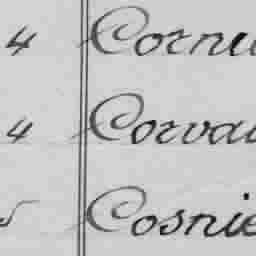 4 Cornu
4 Corvai
5 Cosnie